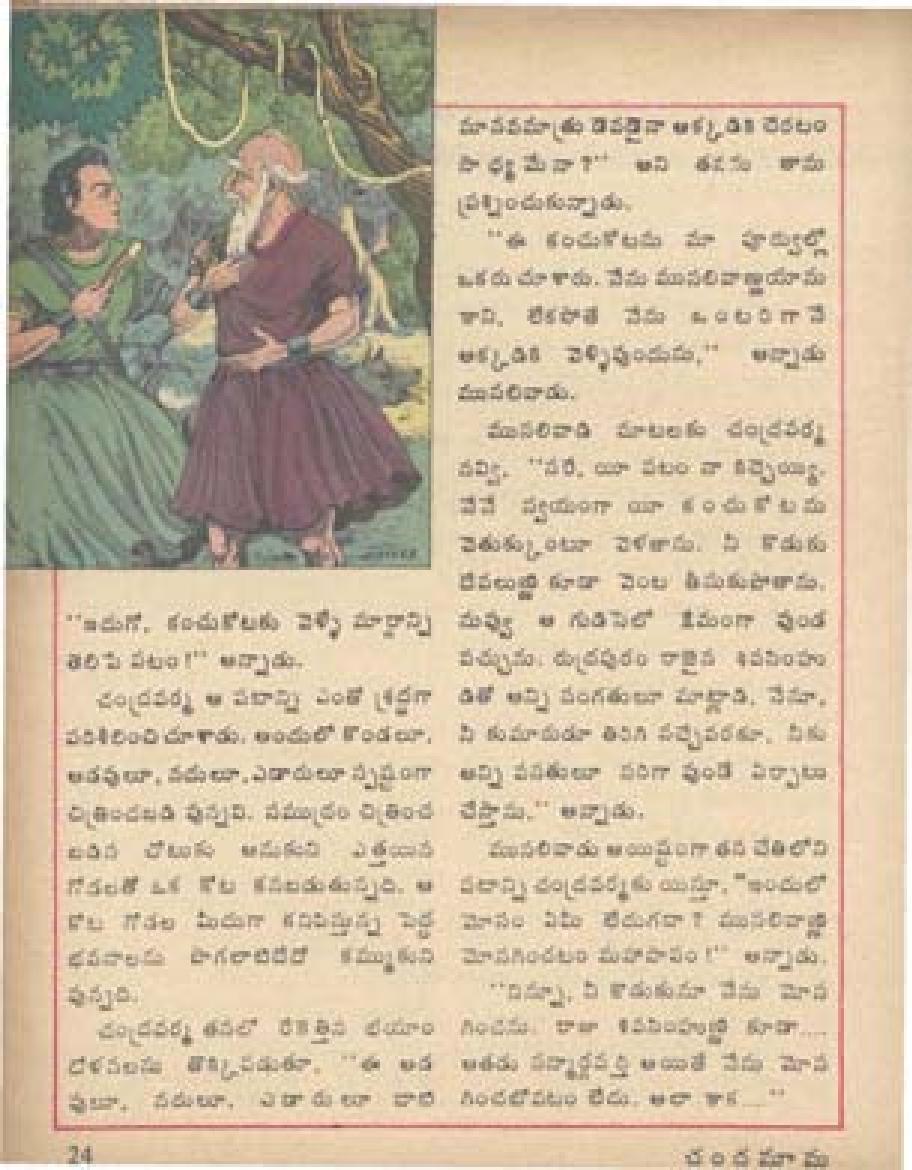 "ఇదుగో, కంచుకోటకు వెళ్ళే మార్గాన్ని
తెలిపే పటం!" అన్నాడు.
చంద్రవర్మ ఆ పటాన్ని ఎంతో శ్రద్ధగా
పరిశీలించిచూశాడు. అందులో కొండలూ,
అడవులూ, నదులూ, ఎడారులూ స్పష్టంగా
చిత్రించబడి వున్నవి. సముద్రం చిత్రించ
బడిన చోటుకు ఆనుకుని ఎత్తయిన
గోడలతో ఒక కోట కనబడుతున్నది. ఆ
కోట గోడల మీదుగా కనిపిస్తున్న పెద్ద
భవనాలను పొగలాటిదేదో కమ్ముకుని
వున్నది.
చంద్రవర్మ తనలో రేకెత్తిన భయాం
దోళనలను తొక్కిపడుతూ, "ఈ అడ
వులూ, నదులూ, ఎడారులూ దాటి
మానవమాత్రు డెవడైనా అక్కడికి చేరటం
సాధ్యమేనా?" అని తనను తాను
ప్రశ్నించుకున్నాడు.
"ఈ కంచుకోటను మా పూర్వుల్లో
ఒకరు చూశారు. నేను ముసలివాణ్ణయాను
కాని, లేకపోతే నేను ఒంటరిగానే
అక్కడికి వెళ్ళివుందును," అన్నాడు
ముసలివాడు.
ముసలివాడి మాటలకు చంద్రవర్మ
నవ్వి, "సరే, యీ పటం నా కిచ్చెయ్యి.
నేనే స్వయంగా యీ కంచుకోటను
వెతుక్కుంటూ వెళతాను. నీ కొడుకు
దేవలుణ్ణి కూడా వెంట తీసుకుపోతాను.
నువ్వు ఆ గుడిసెలో క్షేమంగా వుండ
వచ్చును. రుద్రపురం రాజైన శివసింహు
డితో అన్ని సంగతులూ మాట్లాడి, నేనూ,
నీ కుమారుడూ తిరిగి వచ్చేవరకూ, నీకు
అన్ని వసతులూ సరిగా వుండే ఏర్పాటు
చేస్తాను," అన్నాడు.
ముసలివాడు అయిష్టంగా తన చేతిలోని
పటాన్ని చంద్రవర్మకు యిస్తూ, "ఇందులో
మోసం ఏమీ లేదుగదా? ముసలివాణ్ణి
మోసగించటం మహాపాపం!" అన్నాడు.
"నిన్నూ, నీ కొడుకునూ నేను మోస
గించను. రాజా శివసింహుణ్ణి కూడా....
అతడు సన్మార్గవర్తి అయితే నేను మోస
గించబోవటం లేదు. అలా కాక...."
24
చందమామ